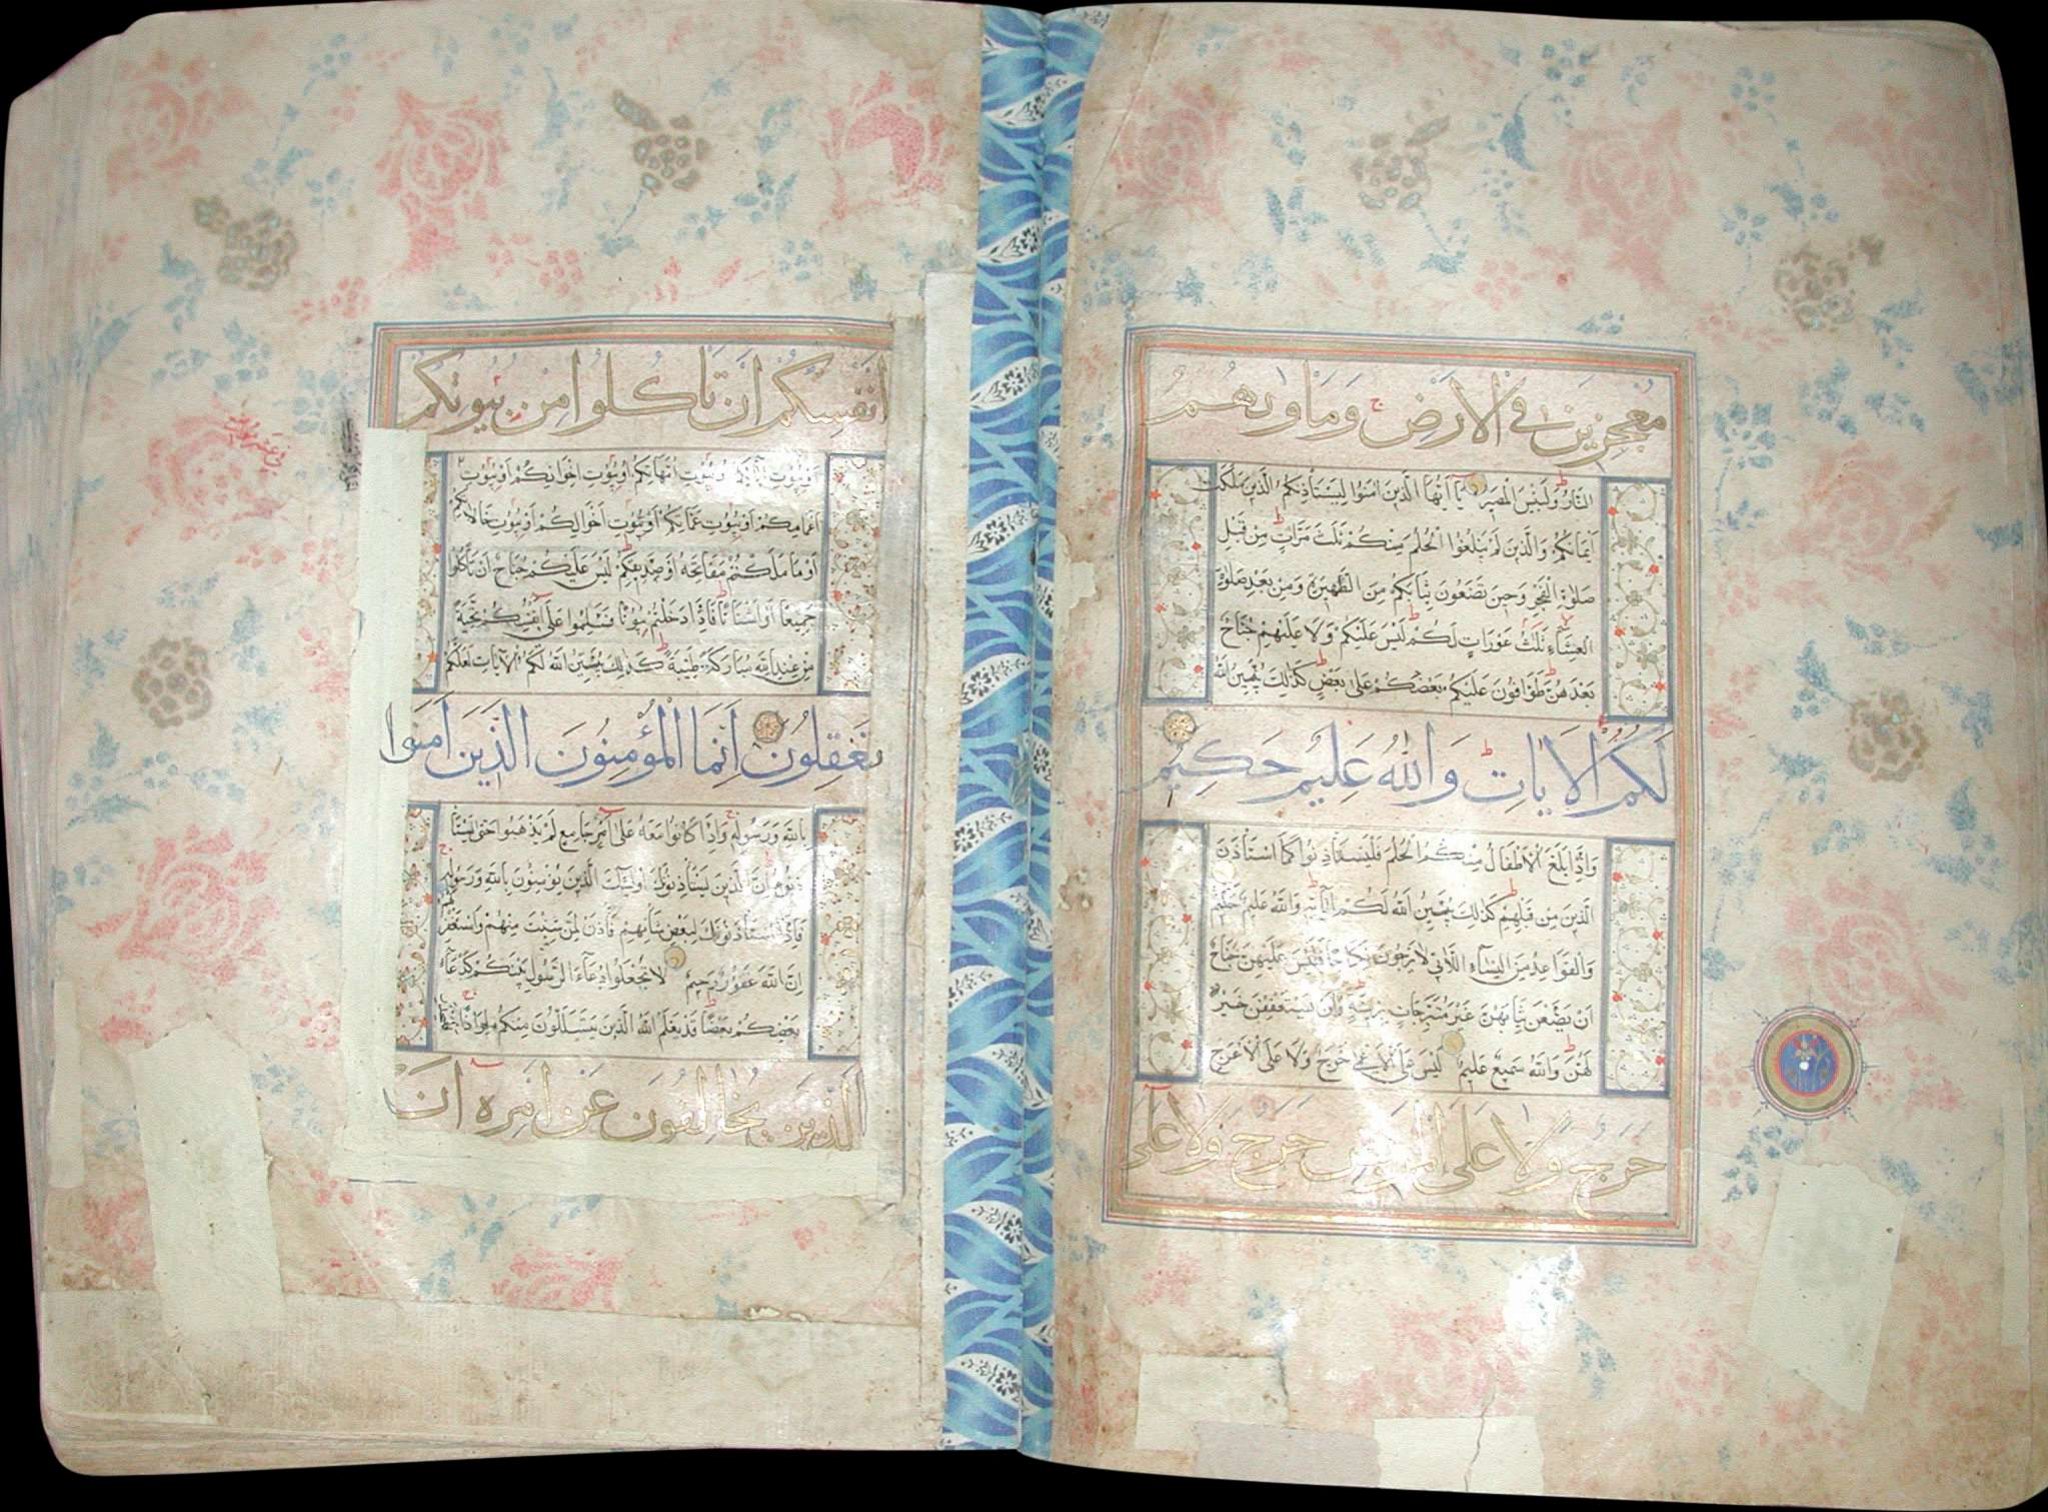 مُعْجِزِينَ فِي الْاَرْضِ وَمَاْوٰيهُمُ
النَّارُ وَلَبِئْسَ الْمَصِيرُ يَا اَيُّهَا الَّذِينَ اٰمَنُوا لِيَسْتَاْذِنْكُمُ الَّذِينَ مَلَكَتْ
اَيْمَانُكُمْ وَالَّذِينَ لَمْ يَبْلُغُوا الْحُلُمَ مِنْكُمْ ثَلٰثَ مَرَّاتٍ مِنْ قَبْلِ
صَلٰوةِ الْفَجْرِ وَحِينَ تَضَعُونَ ثِيَابَكُمْ مِنَ الظَّهِيرَةِ وَمِنْ بَعْدِ صَلٰوةِ
الْعِشَاءِ ثَلٰثُ عَوْرَاتٍ لَكُمْ لَيْسَ عَلَيْكُمْ وَلَا عَلَيْهِمْ جُنَاحٌ
بَعْدَهُنَّ طَوَّافُونَ عَلَيْكُمْ بَعْضُكُمْ عَلٰى بَعْضٍ كَذٰلِكَ يُبَيِّنُ اللّٰهُ
لَكُمُ الْاٰيَاتِ وَاللّٰهُ عَلِيمٌ حَكِيمٌ
وَاِذَا بَلَغَ الْاَطْفَالُ مِنْكُمُ الْحُلُمَ فَلْيَسْتَاْذِنُوا كَمَا اسْتَاْذَنَ
الَّذِينَ مِنْ قَبْلِهِمْ كَذٰلِكَ يُبَيِّنُ اللّٰهُ لَكُمْ اٰيَاتِهِ وَاللّٰهُ عَلِيمٌ حَكِيمٌ
وَالْقَوَاعِدُ مِنَ النِّسَاءِ اللَّاتِي لَا يَرْجُونَ نِكَاحًا فَلَيْسَ عَلَيْهِنَّ جُنَاحٌ
اَنْ يَضَعْنَ ثِيَابَهُنَّ غَيْرَ مُتَبَرِّجَاتٍ بِزِينَةٍ وَاَنْ يَسْتَعْفِفْنَ خَيْرٌ
لَهُنَّ وَاللّٰهُ سَمِيعٌ عَلِيمٌ لَيْسَ عَلَى الْاَعْمٰى حَرَجٌ وَلَا عَلَى الْاَعْرَجِ
حَرَجٌ وَلَا عَلَى الْمَرِيضِ حَرَجٌ وَلَا عَلٰى
اَنْفُسِكُمْ اَنْ تَاْكُلُوا مِنْ بُيُوتِكُمْ
اَوْ بُيُوتِ اٰبَائِكُمْ اَوْ بُيُوتِ اُمَّهَاتِكُمْ اَوْ بُيُوتِ اِخْوَانِكُمْ اَوْ بُيُوتِ
اَعْمَامِكُمْ اَوْ بُيُوتِ عَمَّاتِكُمْ اَوْ بُيُوتِ اَخْوَالِكُمْ اَوْ بُيُوتِ خَالَاتِكُمْ
اَوْ مَا مَلَكْتُمْ مَفَاتِحَهُ اَوْ صَدِيقِكُمْ لَيْسَ عَلَيْكُمْ جُنَاحٌ اَنْ تَاْكُلُوا
جَمِيعًا اَوْ اَشْتَاتًا فَاِذَا دَخَلْتُمْ بُيُوتًا فَسَلِّمُوا عَلٰى اَنْفُسِكُمْ تَحِيَّةً
مِنْ عِنْدِ اللّٰهِ مُبَارَكَةً طَيِّبَةً كَذٰلِكَ يُبَيِّنُ اللّٰهُ لَكُمُ الْاٰيَاتِ لَعَلَّكُمْ
تَعْقِلُونَ اِنَّمَا الْمُؤْمِنُونَ الَّذِينَ اٰمَنُوا
بِاللّٰهِ وَرَسُولِهِ وَاِذَا كَانُوا مَعَهُ عَلٰى اَمْرٍ جَامِعٍ لَمْ يَذْهَبُوا حَتّٰى يَسْتَاْ
ذِنُوهُ اِنَّ الَّذِينَ يَسْتَاْذِنُونَكَ اُولٰئِكَ الَّذِينَ يُؤْمِنُونَ بِاللّٰهِ وَرَسُولِهِ
فَاِذَا اسْتَاْذَنُوكَ لِبَعْضِ شَاْنِهِمْ فَاْذَنْ لِمَنْ شِئْتَ مِنْهُمْ وَاسْتَغْفِرْ لَهُمُ
اِنَّ اللّٰهَ غَفُورٌ رَحِيمٌ لَا تَجْعَلُوا دُعَاءَ الرَّسُولِ بَيْنَكُمْ كَدُعَاءِ
بَعْضِكُمْ بَعْضًا قَدْ يَعْلَمُ اللّٰهُ الَّذِينَ يَتَسَلَّلُونَ مِنْكُمْ لِوَاذًا فَلْيَحْذَرِ
الَّذِينَ يُخَالِفُونَ عَنْ اَمْرِهِ اَنْ